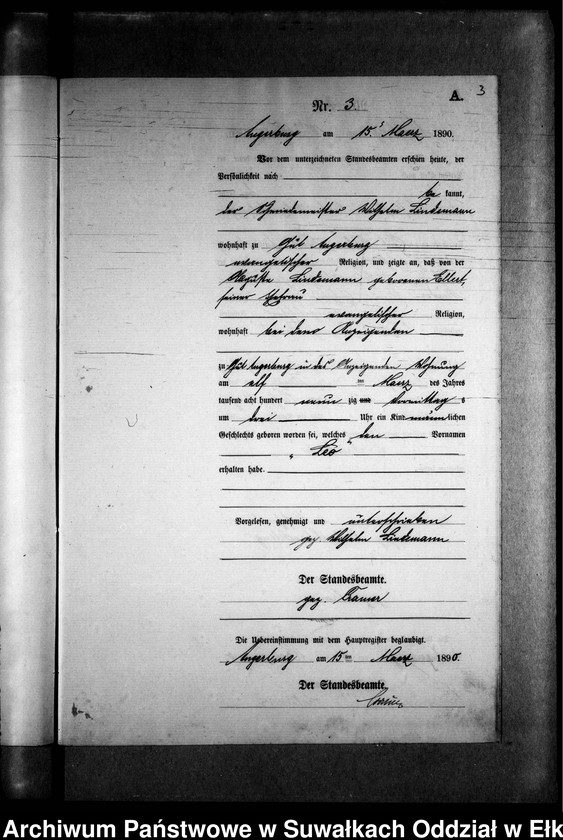 3
A.
Nr. 3
Angerburg am 15. Maerz 1890.
Vor dem unterzeichneten Standesbeamten erschien heute, der
Persönlichkeit nach
be kannt,
der Wilhelm Lindemann
wohnhaft zu Gut Angerburg
evangelischer Religion, und zeigte an, daß von der
Auguste Lindemann geborenen Ellert,
seiner Ehefrau
evangelischer Religion,
wohnhaft bei dem Anzeigenden
zu Gut Angerburg in des Anzeigenden Wohnung
am elf ten Maerz des Jahres
tausend acht hundert neun zig und Vormittag s
um drei Uhr ein Kind männ lichen
Geschlechts geboren worden sei, welches den Vornamen
„Leo“
erhalten habe.
Vorgelesen, genehmigt und unterschrieben
gez Wilhelm Lindemann
Der Standesbeamte.
gez.
Die Uebereinstimmung mit dem Hauptregister beglaubigt.
Angerburg am 15 ten Maerz 1890.
Der Standesbeamte.
Archiwum Państwowe w Suwałkach Oddział w Ełk